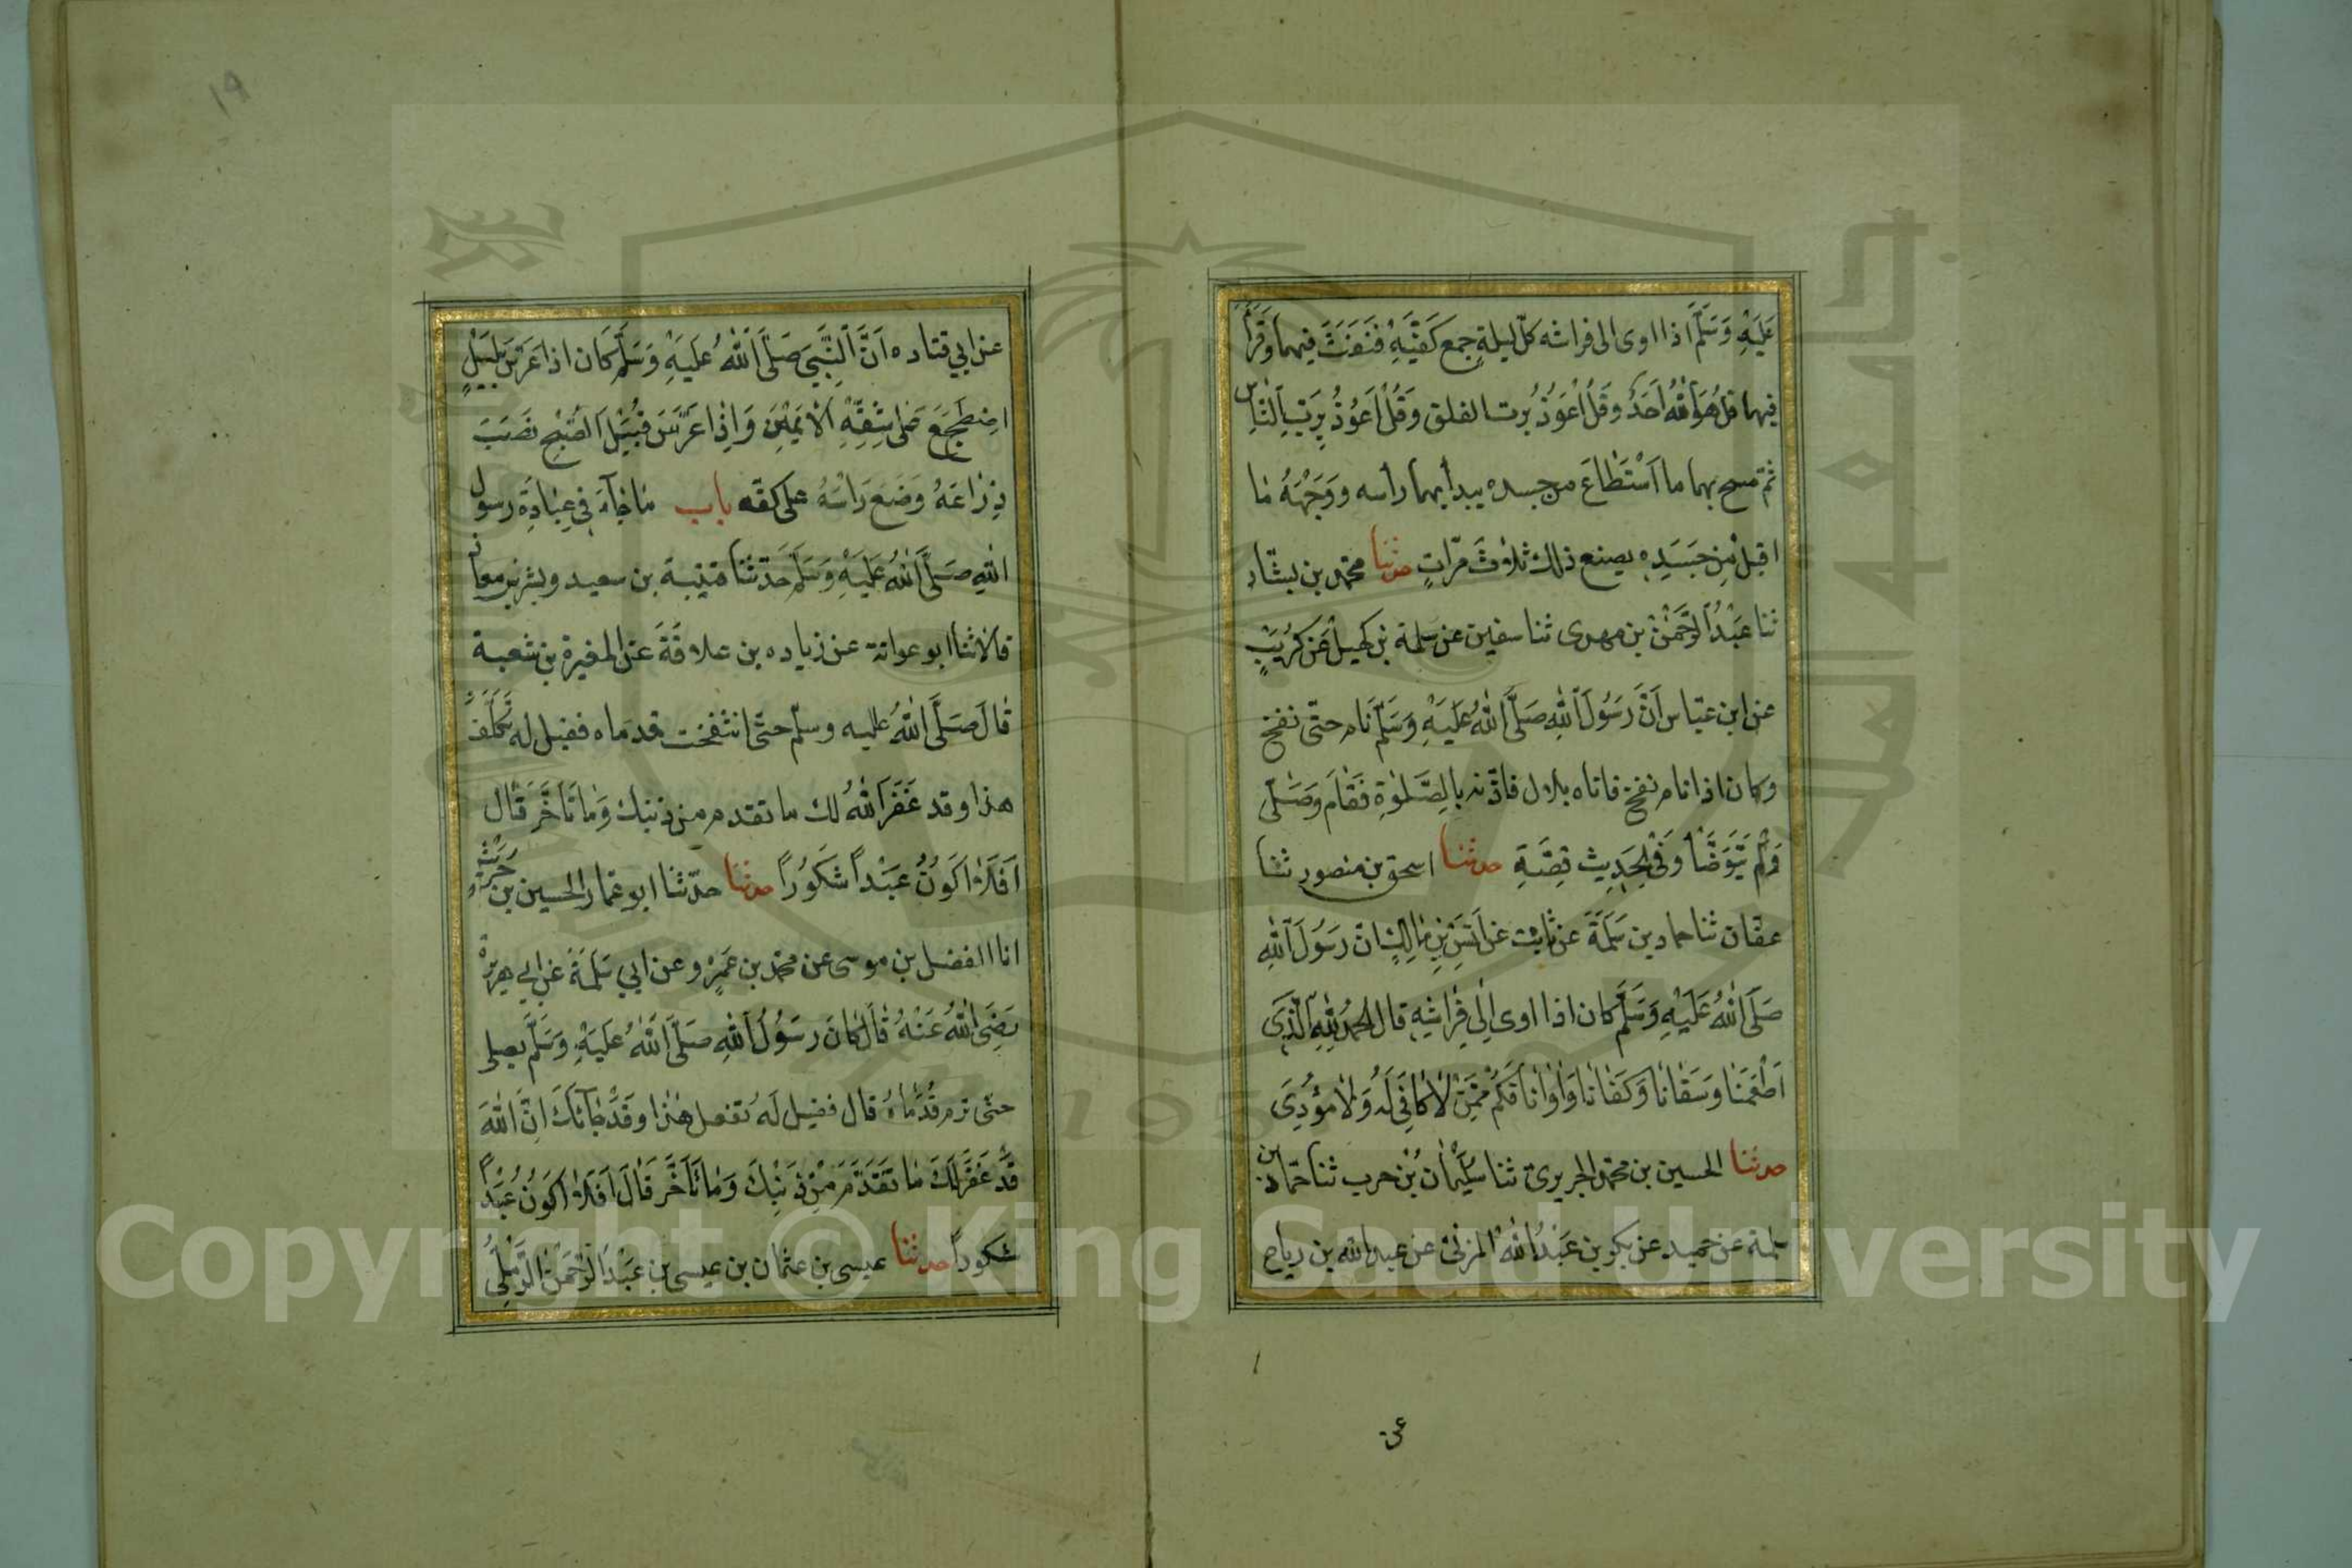 عَلَيْهِ وَسَلَّمَ اذا اوى الى فراشه كلّ ليلةٍ جمع كَفَّيْهِ فَنَفَثَ فيهما وَقَرَأَ
فيهما قل هُوَ اللّٰهُ اَحَدٌ وقُلْ اَعُوذُ بُرت الفلق وَقُلْ اَعُوذُ بِرَبِّ اَلنَّاسِ
ثمّ مسح بهما ما اَسْتَطَاعَ من جسده يبدأ بهما رأسه ووَجْهَهُ مٰا
اقبل مِن جَسَدِه يصنع ذلك ثَلٰوثَ مّراتٍ حدثنا محمّد بن بشّار
ثنا عَبْدُ اَلرَّحْمٰنْ بن مهدى ثنا سفين عن سَلمة بْن كهيلْ عَن كُرَيْبٍ
عن ابن عبّاس اَنَّ رَسُولَ اَللّٰهِ صَلَّى اَللّٰهُ عَلَيْهِ وَسَلَّمَ نَام حتّى نفخ
وكان اذا نام نفخ فاتاه بلال فاذّنه بالِصَّلوٰةِ فَقٰامَ وَصَلّٰى
وَلَمْ يَتَوَضَّأْ وَفي الحَدِيث قِصَّةِ حدثنا اسحق بن منصور ثنا
عفّان ثنا حماد بن سَلَمَةَ عن ثابت عَن اَنَسِ بْنِ مٰالِكٍ اَنّ رَسُولَ اَللّٰهِ
صَلَّى اَللّٰهُ عَلَيْهِ وَسَلَّمَ كان اذا اوى اِلى فِرٰاشِهِ قال الحمدُ لِلّٰهِ اَلَّذِى
اَطْعَمَنٰا وَسَقٰانٰا وَكَفٰانٰا وَاٰوٰانٰا فَكَمْ مِمَّنْ لٰا كٰافِىَ لَهُ وَلٰا مؤُدِىَ
حدثنا الحسين بن محمّد الجريرىّ ثنا سُلَيْمٰان بْن حرب ثنا حمّاد بن
سلمة عن حميد عن بكر بن عَبْدُ اللّٰه المزنىّ عن عبد الله بن رباح
عن
١٩
عن ابي قتاده اَنَّ اَلنِّبَّيَ صَلَّى اَللّٰهُ عَلَيْهِ وَسَلَّمَ كَان اذا عَرّسَ بِلَيْلٍ
اضِطَجَعَ عَلى شِقِّهِ اَلْاَيْمَنِ وَاِذٰا عَرَّسَ قُبَيْلَ اَلصُّبْحِ نَصَبَ
ذِرٰاعَهُ وَضَعَ رَاْسَهُ على كفّه باب مٰا جٰآءَ فِي عِبٰادَةِ رسول
اللهِ صَلَّى اَللّٰهُ عَلَيْهِ وَسَلَّمَ حَدّثنا قتيبة بن سعيد وبشر بن معاذ
قالا ثنا ابو عوانة عن زياده بن علاقَةَ عن المغيرة بن شعبة
قٰالَ صَلَّى اَللّٰهُ عليه وسلّم حتّى انتفخت قدمَاه فقيل له تَكَلَّفُ
هذا وقد غَفَرَ اَللّٰهُ لك ما تقدم من ذنبك وَمٰا تَأَخَّرَ قٰال
اَفَلاٰ اَكَوُنُ عَبْداً شَكَوُراً حدثنا حدّثنا ابو عمّار الحسين بن حُرَيْثٍ
انا الفضل بن موسى عن محمّد بن عَمْرٍو عن ابي سَلَمَةَ عَن ابي هريرة
رَضِىَ اللّٰهُ عَنْهُ قٰالَ كٰانَ رَسُولُ اَللّٰهِ صَلَّى اَللّٰهُ عَلَيْهِ وَسَلَّمَ يصلى
حتّى ترم قَدَمٰاهُ قال فقيل لَهُ تفعل هٰذا وقَدْ جٰآئَكَ انَّ اَللّٰهَ
قَدْ غَفَرَ لَكَ مٰا تَقَدَّمَ مِنْ ذَنْبِكَ وَمٰا تَأَخَّرَ قَالَ اَفَلاٰ اَكَوُنُ عَبْداً
شكوراً حدثنا عيسى بن عثمان بن عيسى بن عَبْدَ اَلرَّحْمٰن اَلرَّمْلِيُّ
Copyright © King Saud University
1957